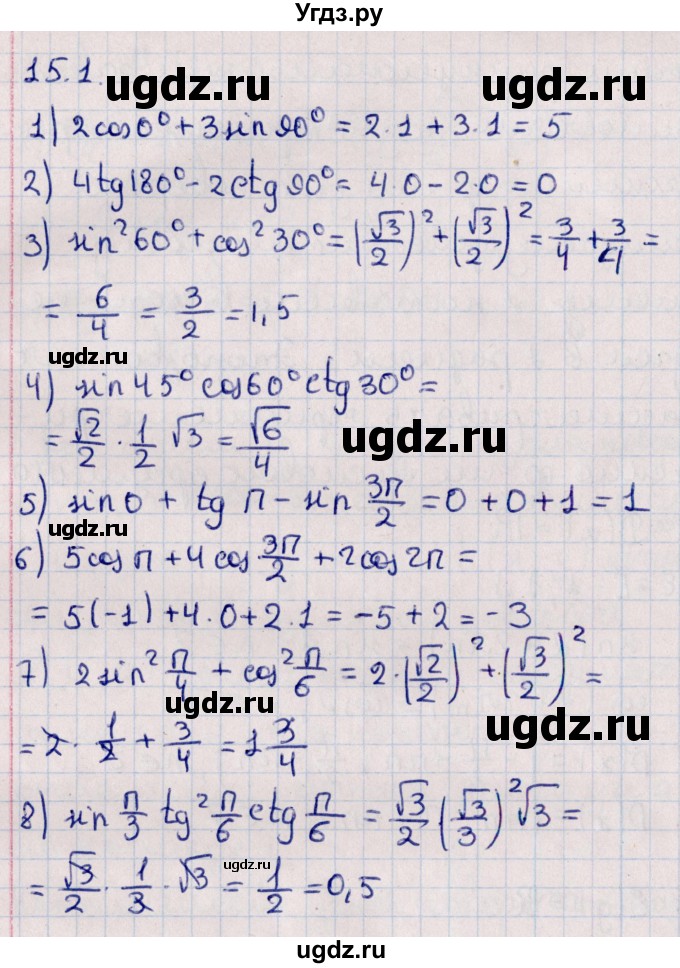 Угдз.ру
15.1.
ugdz.ru ugdz.ru
1) 2cos0° + 3sin90° = 2·1 + 3·1 = 5
2) 4tg180° - 2ctg90° = 4·0 - 2·0 = 0
3) sin²60° + cos²30° = (√3/2)² + (√3/2)² = 3/4 + 3/4 =
= 6/4 = 3/2 = 1,5
ugdz.ru
4) sin45° cos60° ctg30° =
= √2/2 · 1/2 √3 = √6/4
ugdz.ru
5) sin0 + tg π - sin 3π/2 = 0 + 0 + 1 = 1
ugdz.ru
6) 5cos π + 4cos 3π/2 + 2cos2π =
= 5(-1) + 4·0 + 2·1 = -5 + 2 = -3
7) 2sin² π/4 + cos² π/6 = 2·(√2/2)² + (√3/2)² =
ugdz.ru ugdz.ru
= 2 · 1/2 + 3/4 = 1 3/4
8) sin π/3 tg² π/6 ctg π/6 = √3/2 (√3/3)² √3 =
ugdz.ru
= √3/2 · 1/3 · √3 = 1/2 = 0,5
ugdz.ru
ugdz.ru